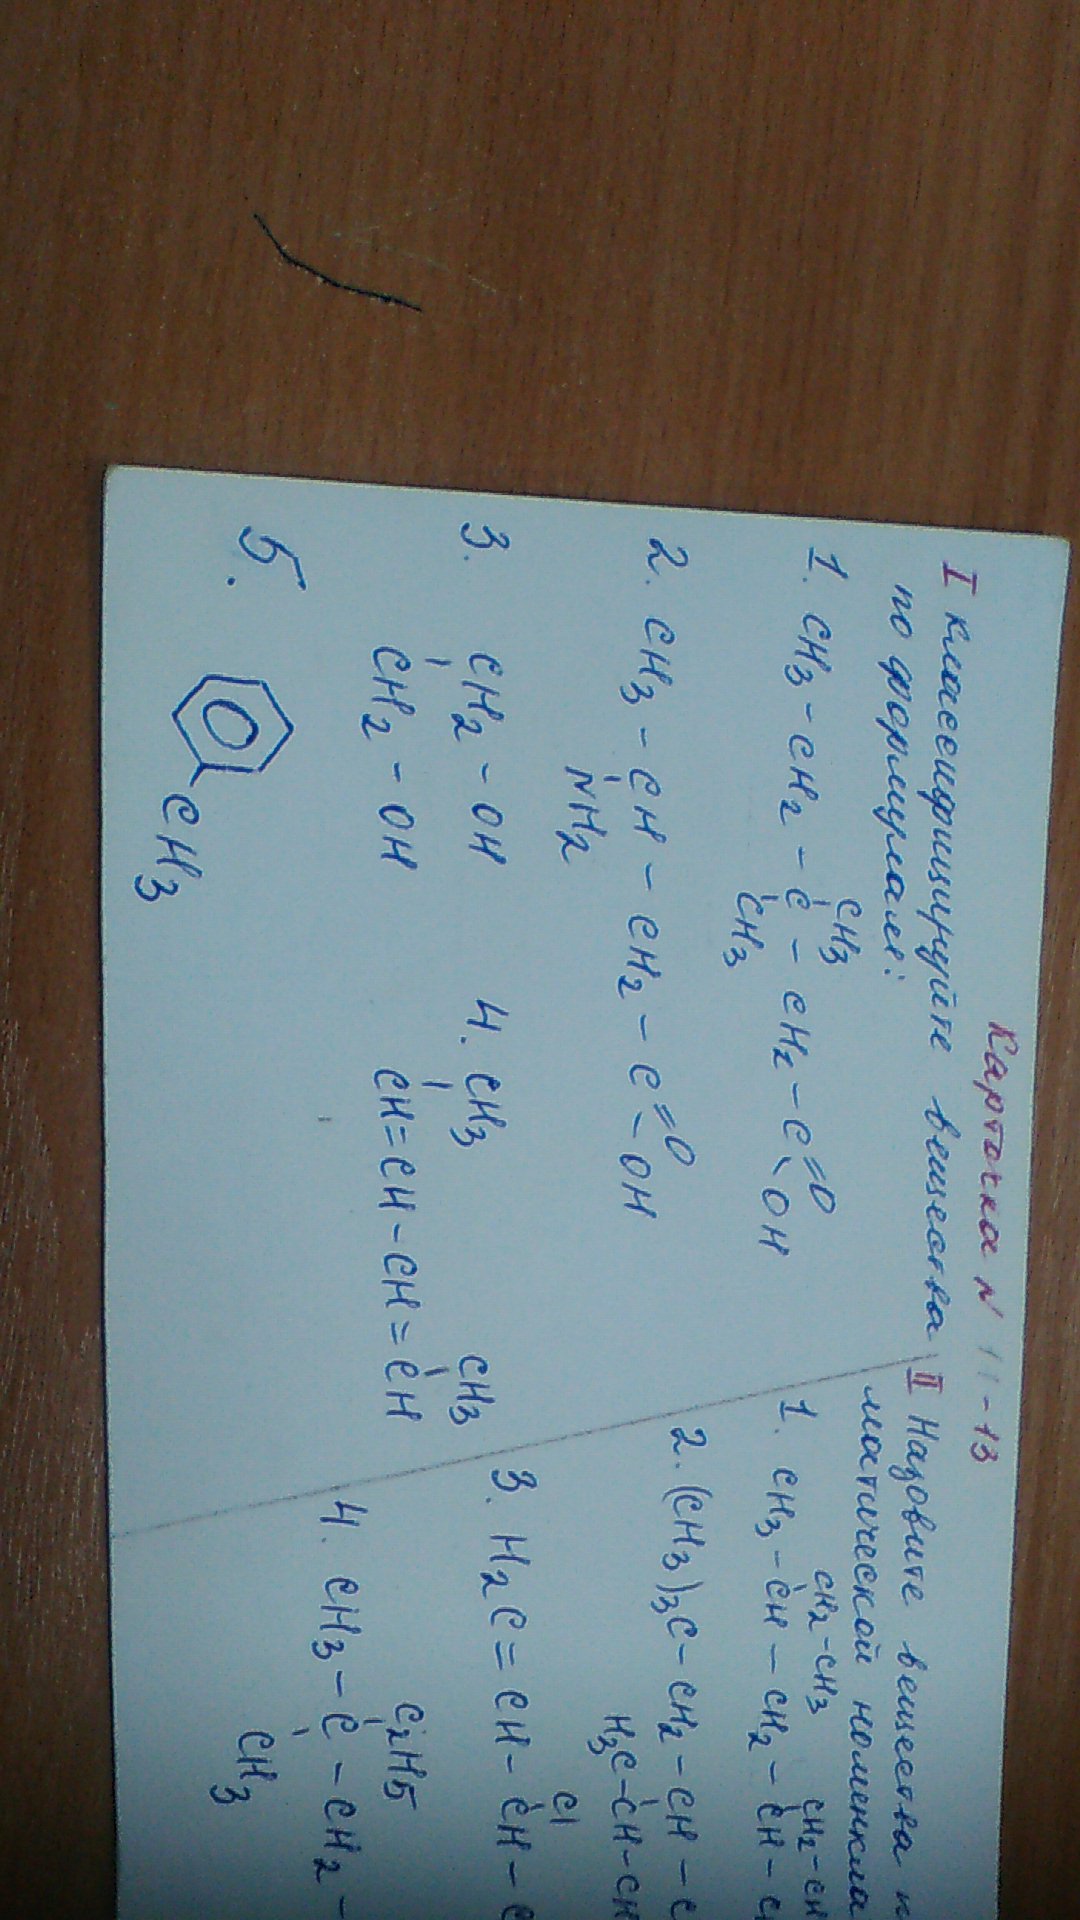 Карточка N 11-13
I Классифицируйте вещества
по формулам:
1. CH3-CH2-C-CH2-C=O
CH3
CH3
OH
2. CH3-CH-CH2-C=O
NH2
-OH
3. CH2-OH
CH2-OH
4. CH3
CH3
CH=CH-CH=CH
5.
CH3
II Назовите вещества
матической номенкла
CH2-CH3
CH2-CH
1. CH3-CH-CH2-CH-
2. (CH3)3C-CH2-CH-C
H3C-CH-CH
Cl
3. H2C=CH-CH-C
C2H5
4. CH3-C-CH2-
CH3